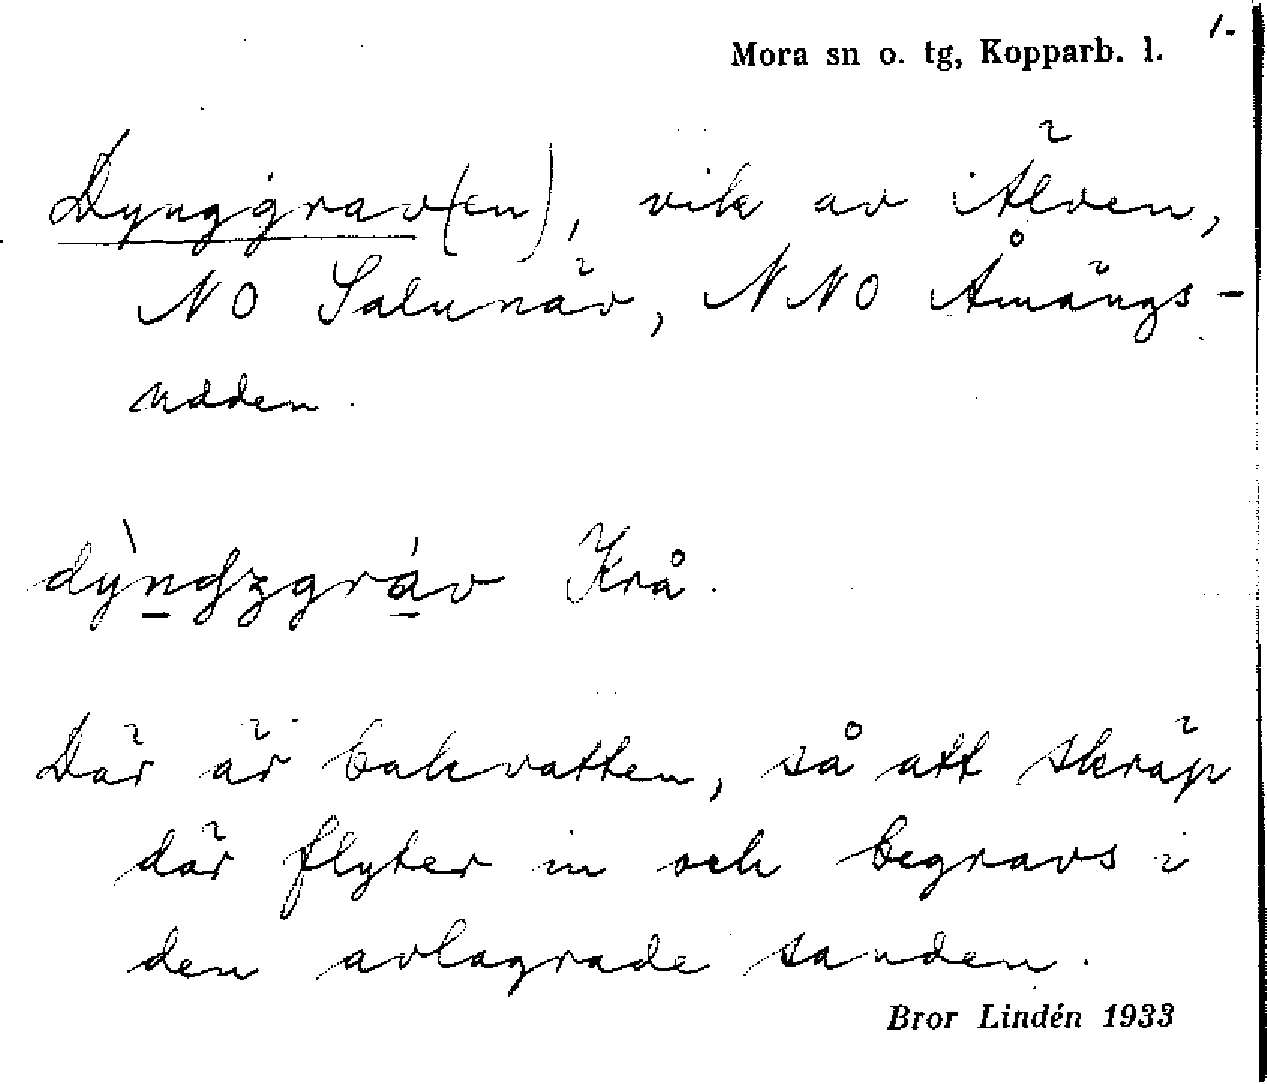 1.
Mora sn o. tg, Kopparb. l.
Dynggrav(en), vik av Älven,
NO Salunäv, NNO Åmängs-
udden.
Krå.
Där är bakvatten, så att skräp
där flyter in och begravs i
den avlagrade sanden.
Bror Lindén 1933